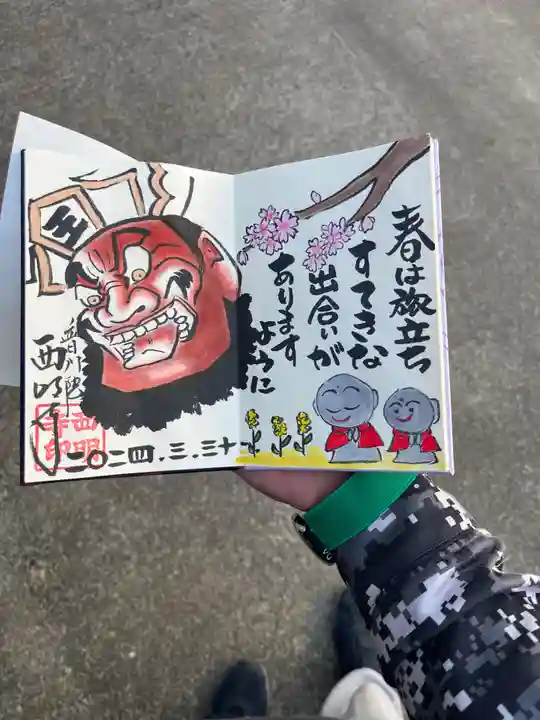 春は旅立ち
すてきな
出会いが
あります
ように
王
西明寺
西明
寺印
二〇二四.三.三十一